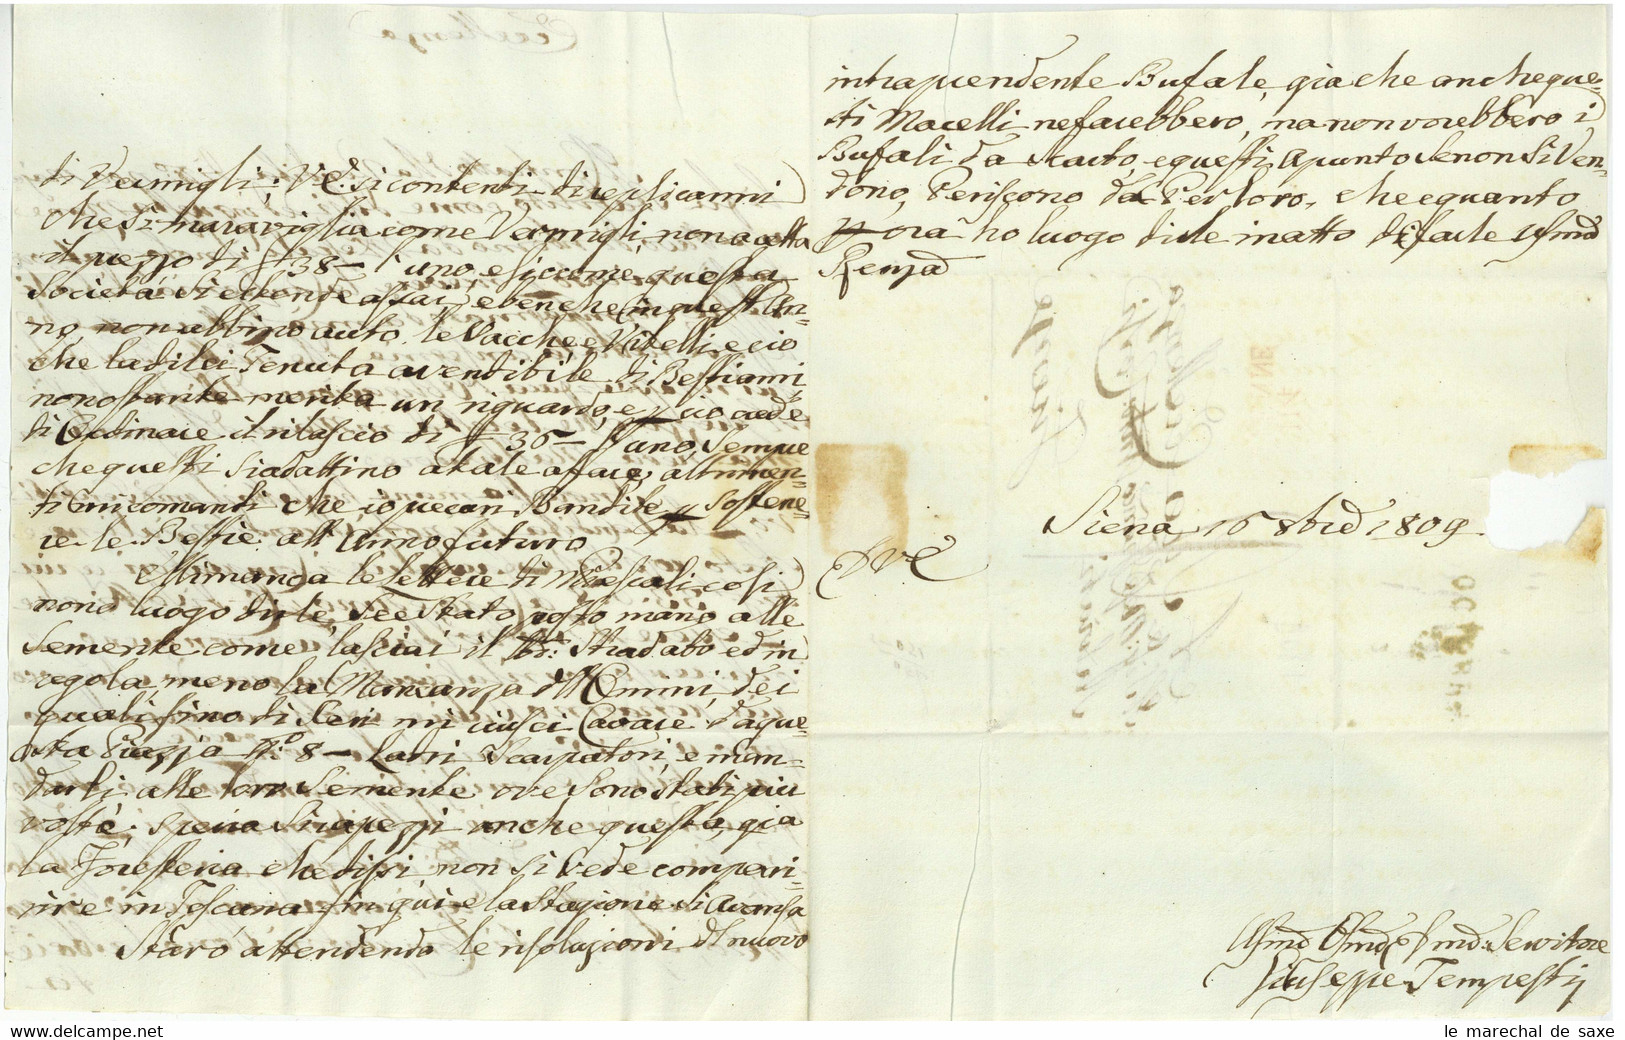 di Vermigli; V.E. si contenti di replicarmi
che si maraviglia come Vermigli non accetta
il prezzo di 38 - l'uno, e siccome questa
Società si estende assai, e benche in quest'An=
no, non abbino auto le Vacche e Vitelli, e cio
che la di lei Tenuta a vendibile di Bestiami,
nonostante merita un riguardo, e p cio crede
di Ordinare il rilascio di 36 - l'uno, sempre
che questi si adattino a tale affare, altrimen=
ti mi comanti che io procuri Bandite p sostene=
re le Bestie all'Anno futuro
Mi manca le Lettere di Mrescali, cosi
non o luogo dirle, se e stato posto mano alle
Semente come lasciai il Stradabò ed in
regola, meno la Mancanza dll'Omini, dei
quali fino di Ieri mi riusci Cavare da que=
sta Piazza No 8 - Lavri Scarpatori, e man=
darli alle lor Semente ove sono stati piu
volte; spera si rapezzi anche questa, gia
la Foresteria che dissi, non si vede compari=
rire in Toscana fin qui e la Stagione si avansa
Starò attendendo le risoluzioni dl nuovo
intraprendente Bufale, gia che anche que=
sti Macelli ne farebbero, ma non vorebbero i
Bufali da Scarto, e questi apunto se non si Ven=
dono, Periscono da Per loro, che e quanto
p ora ho luogo dirle in atto di farle
Renza
V E
Siena 16 8bre 1809
Servitore
Giuseppe Tempestij
le marechal de saxe
delcampe.net